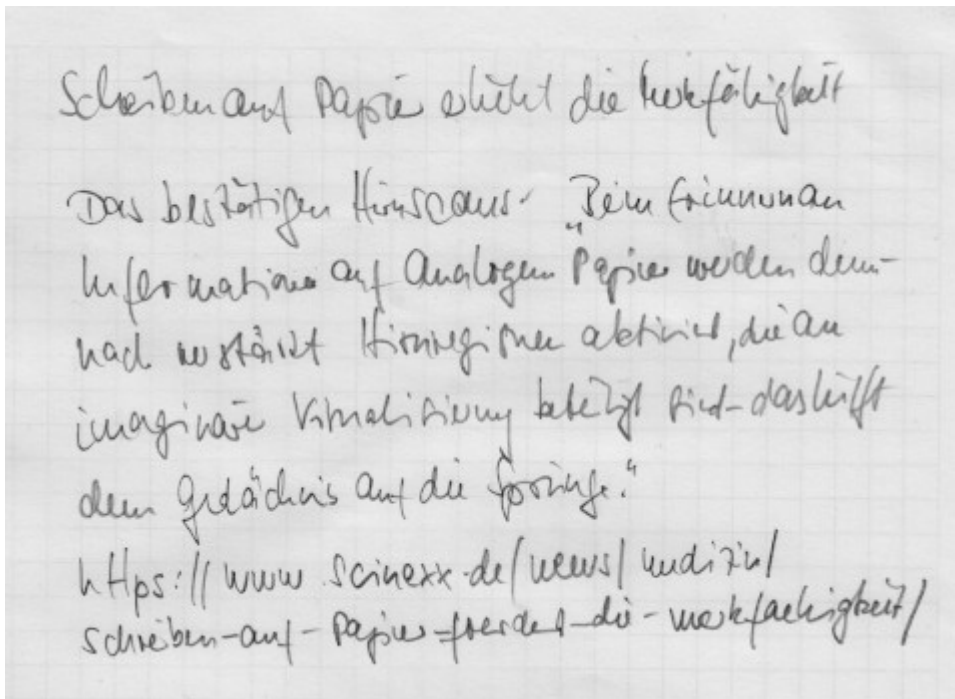 Schreiben auf Papier erhöht die Merkfähigkeit
Das bestätigen Hirnscans. „Beim Erinnern an
Informationen auf Analogem Papier werden dem-
nach verstärkt Hirnregionen aktiviert, die an
imaginärer Visualisierung beteiligt sind – das hilft
dem Gedächnis auf die Sprünge.“
https://www.scinexx.de/news/medizin/
schreiben-auf-Papier-foerdert-die-merkfaehigkeit/